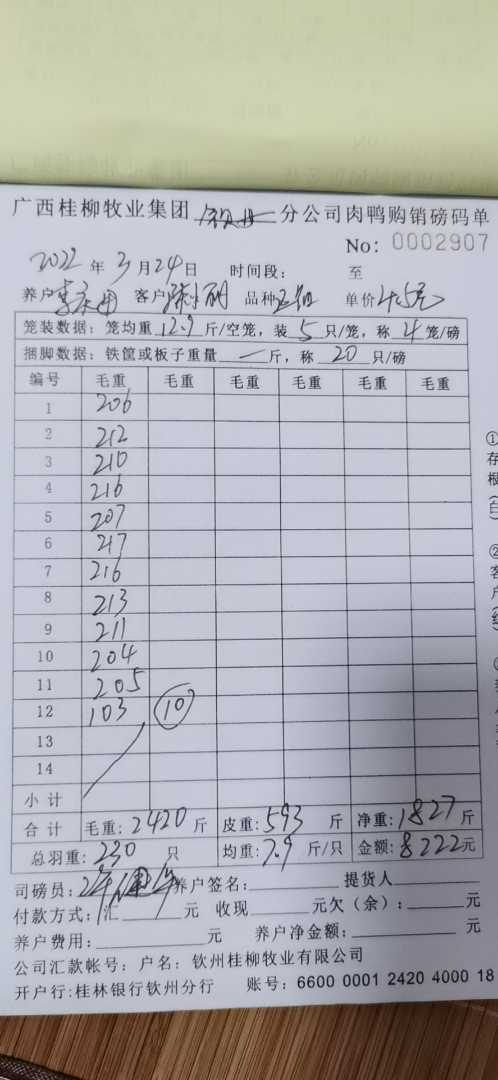 广西桂柳牧业集团 钦州 分公司肉鸭购销磅码单
No: 0002907
2022 年 3 月 24 日 时间段: 至
养户 客户 品种 单价 4.5元
笼装数据: 笼均重 12.9 斤/空笼, 装 5 只/笼, 称 4 笼/磅
捆脚数据: 铁筐或板子重量 一 斤, 称 20 只/磅
编号 毛重 毛重 毛重 毛重 毛重 毛重
1 206
2 212
3 210
4 216
5 207
6 217
7 216
8 213
9 211
10 204
11 205
12 103 10
13
14
小计
合计 毛重: 2420 斤 皮重: 593 斤 净重: 1827 斤
总羽重: 230 只 均重: 7.9 斤/只 金额: 8222元
司磅员: 养户签名: 提货人
付款方式: 汇 元 收现 元欠(余): 元
养户费用: 元 养户净金额: 元
公司汇款帐号: 户名: 钦州桂柳牧业有限公司
开户行:桂林银行钦州分行 账号: 6600 0001 2420 4000 18
①
存
根
(白
②
客
户